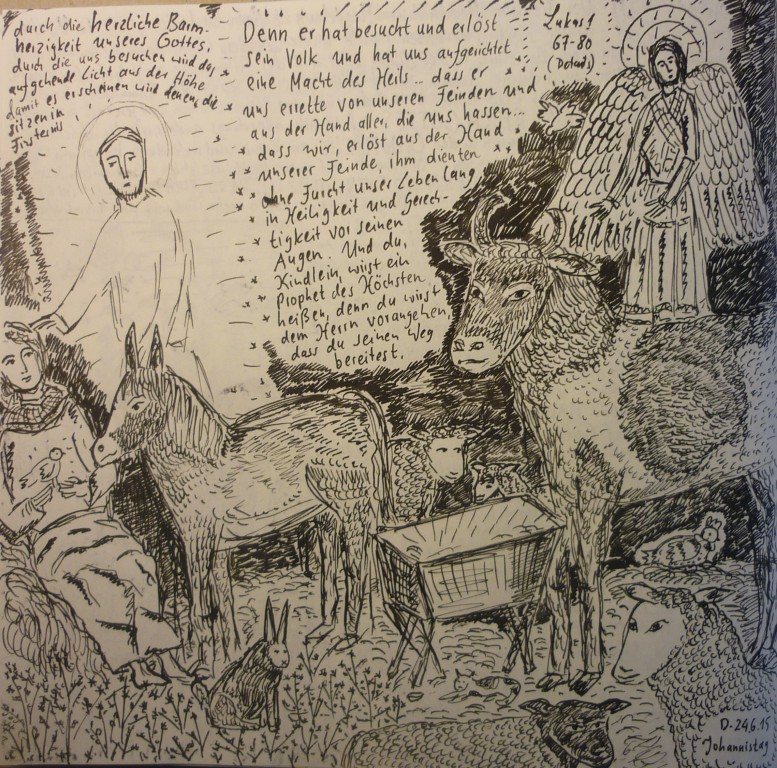 durch die herzliche Barm-
herzigkeit unseres Gottes,
durch die uns besuchen wird das
aufgehende Licht aus der Höhe
damit es erscheinen wird denen, die
sitzen in
Finsternis
Denn er hat besucht und erlöst
sein Volk und hat uns aufgerichtet
eine Macht des Heils... dass er
uns errette von unseren Feinden und
aus der Hand aller, die uns hassen...
dass wir, erlöst aus der Hand
unserer Feinde, ihm dienten
ohne Furcht unser Leben lang
in Heiligkeit und Gerech-
tigkeit vor seinen
Augen. Und du,
Kindlein, wirst ein
Prophet des Höchsten
heißen, denn du wirst
dem Herrn vorangehen,
dass du seinen Weg
bereitest.
Lukas 1
67-80
D-24.6.15
Johannistag